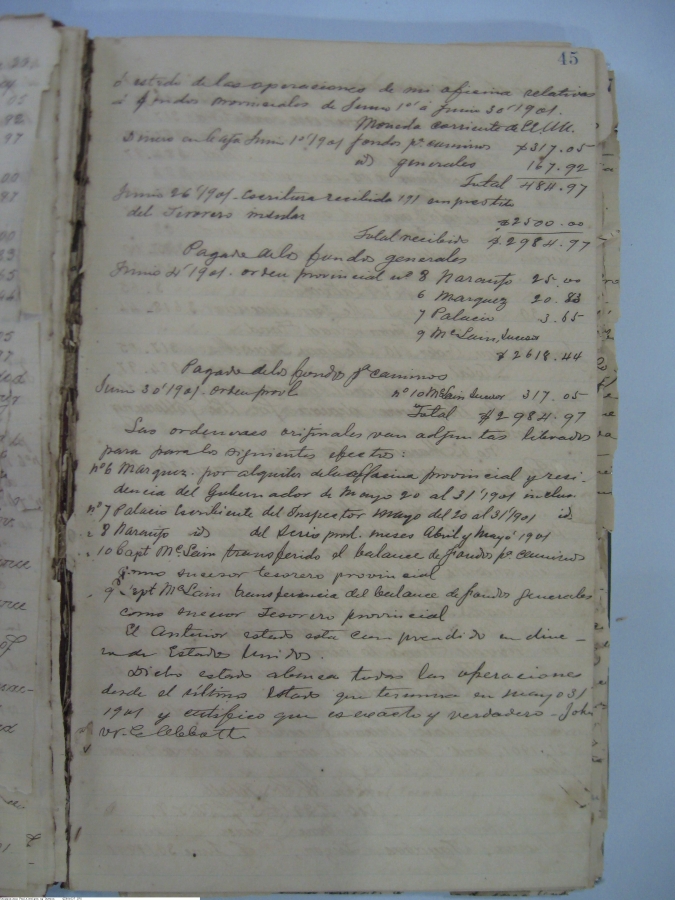 45
ó estado de las operaciones de mi oficina relativas
á fondos provinciales de Junio 1º á Junio 30 1901.
Moneda corriente de E.UU.
Dinero en Caja Junio 1º 1901 fondos pª caminos $317.05
id generales 167.92
Total 484.97
Junio 26 1901. Escritura recibida empréstito
del Tesorero insular
$2500.00
Total recibido $2984.97
Pagado de los fondos generales
Junio 4 1901. orden provincial nº 8 Naranjo 25.00
6 Marquez 20.83
7 Palacio 3.65
9 McLain,
$2618.44
Pagado de los fondos pª caminos
Junio 30 1901. orden provl nº 10 McLain 317.05
Total $2984.97
Las ordenes originales van adjuntas libradas
para los siguientes efectos:
nº 6 Marquez. por alquiler de la oficina provincial y resi-
dencia del Gobernador de Mayo 20 al 31 1901
nº 7 Palacio Escribiente del Inspector Mayo del 20 al 31 1901 id
" 8 Naranjo id del prvl. meses Abril y Mayo 1901
" 10 Capt McLain transferido el balance de fondos pª caminos
como sucesor tesorero provincial
" 9 Capt McLain transferencia del balance de fondos generales
como sucesor Tesorero provincial
El Anterior estado está comprendido en dine-
ro de Estados Unidos.
Dicho estado abarca todas las operaciones
desde el último Estado que termina en mayo 31
1901 y certifico que es exacto y verdadero - John